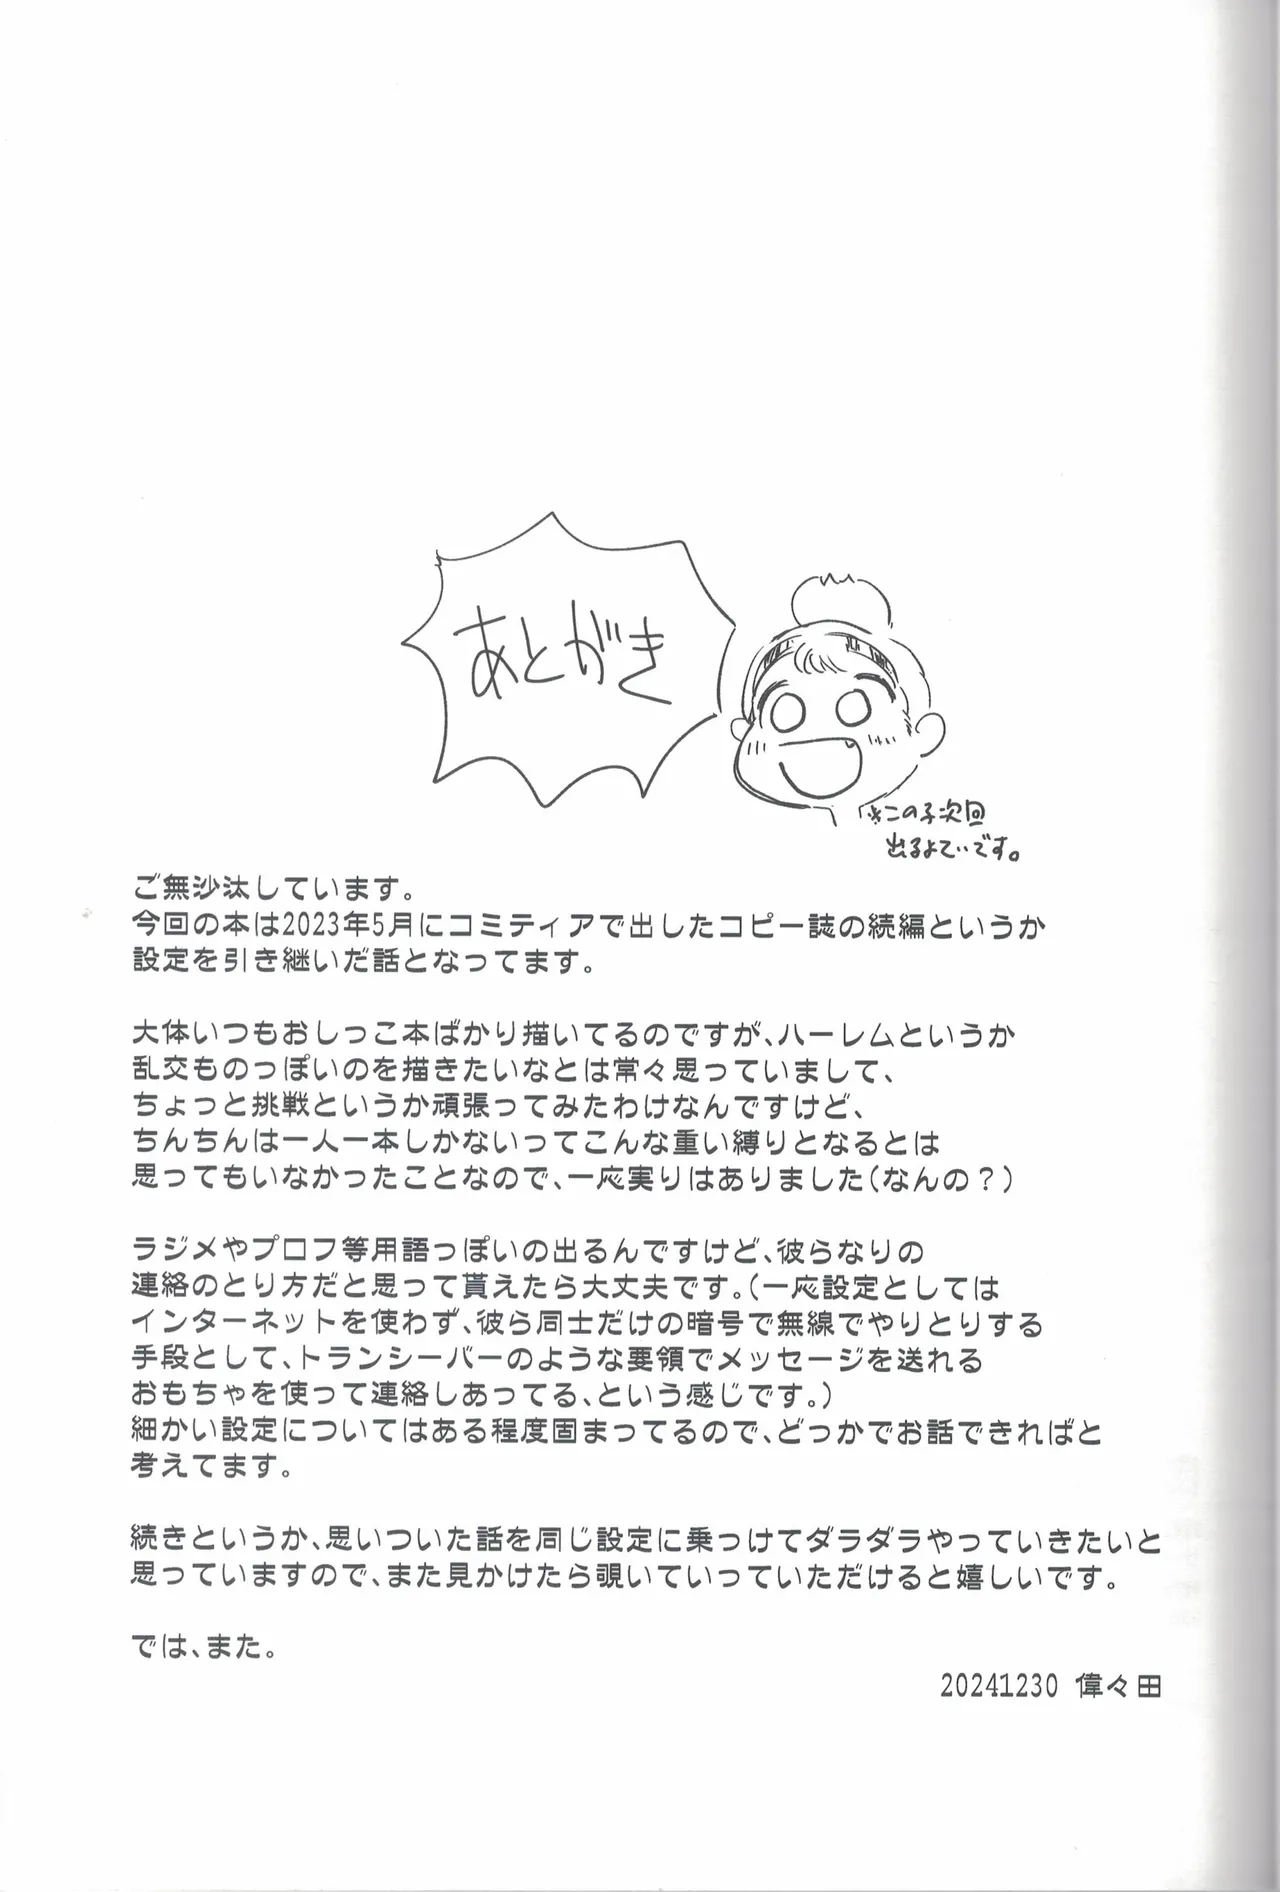 あとがき
※この子次回
出るよていです。
ご無沙汰しています。
今回の本は2023年5月にコミティアで出したコピー誌の続編というか
設定を引き継いだ話となってます。
大体いつもおしっこ本ばかり描いてるのですが、ハーレムというか
乱交ものっぽいのを描きたいなとは常々思っていまして、
ちょっと挑戦というか頑張ってみたわけなんですけど、
ちんちんは一人一本しかないってこんな重い縛りとなるとは
思ってもいなかったことなので、一応実りはありました(なんの？)
ラジメやプロフ等用語っぽいの出るんですけど、彼らなりの
連絡のとり方だと思って貰えたら大丈夫です。(一応設定としては
インターネットを使わず、彼ら同士だけの暗号で無線でやりとりする
手段として、トランシーバーのような要領でメッセージを送れる
おもちゃを使って連絡しあってる、という感じです。)
細かい設定についてはある程度固まってるので、どっかでお話できればと
考えてます。
続きというか、思いついた話を同じ設定に乗っけてダラダラやっていきたいと
思っていますので、また見かけたら覗いていっていただけると嬉しいです。
では、また。
20241230 偉々田